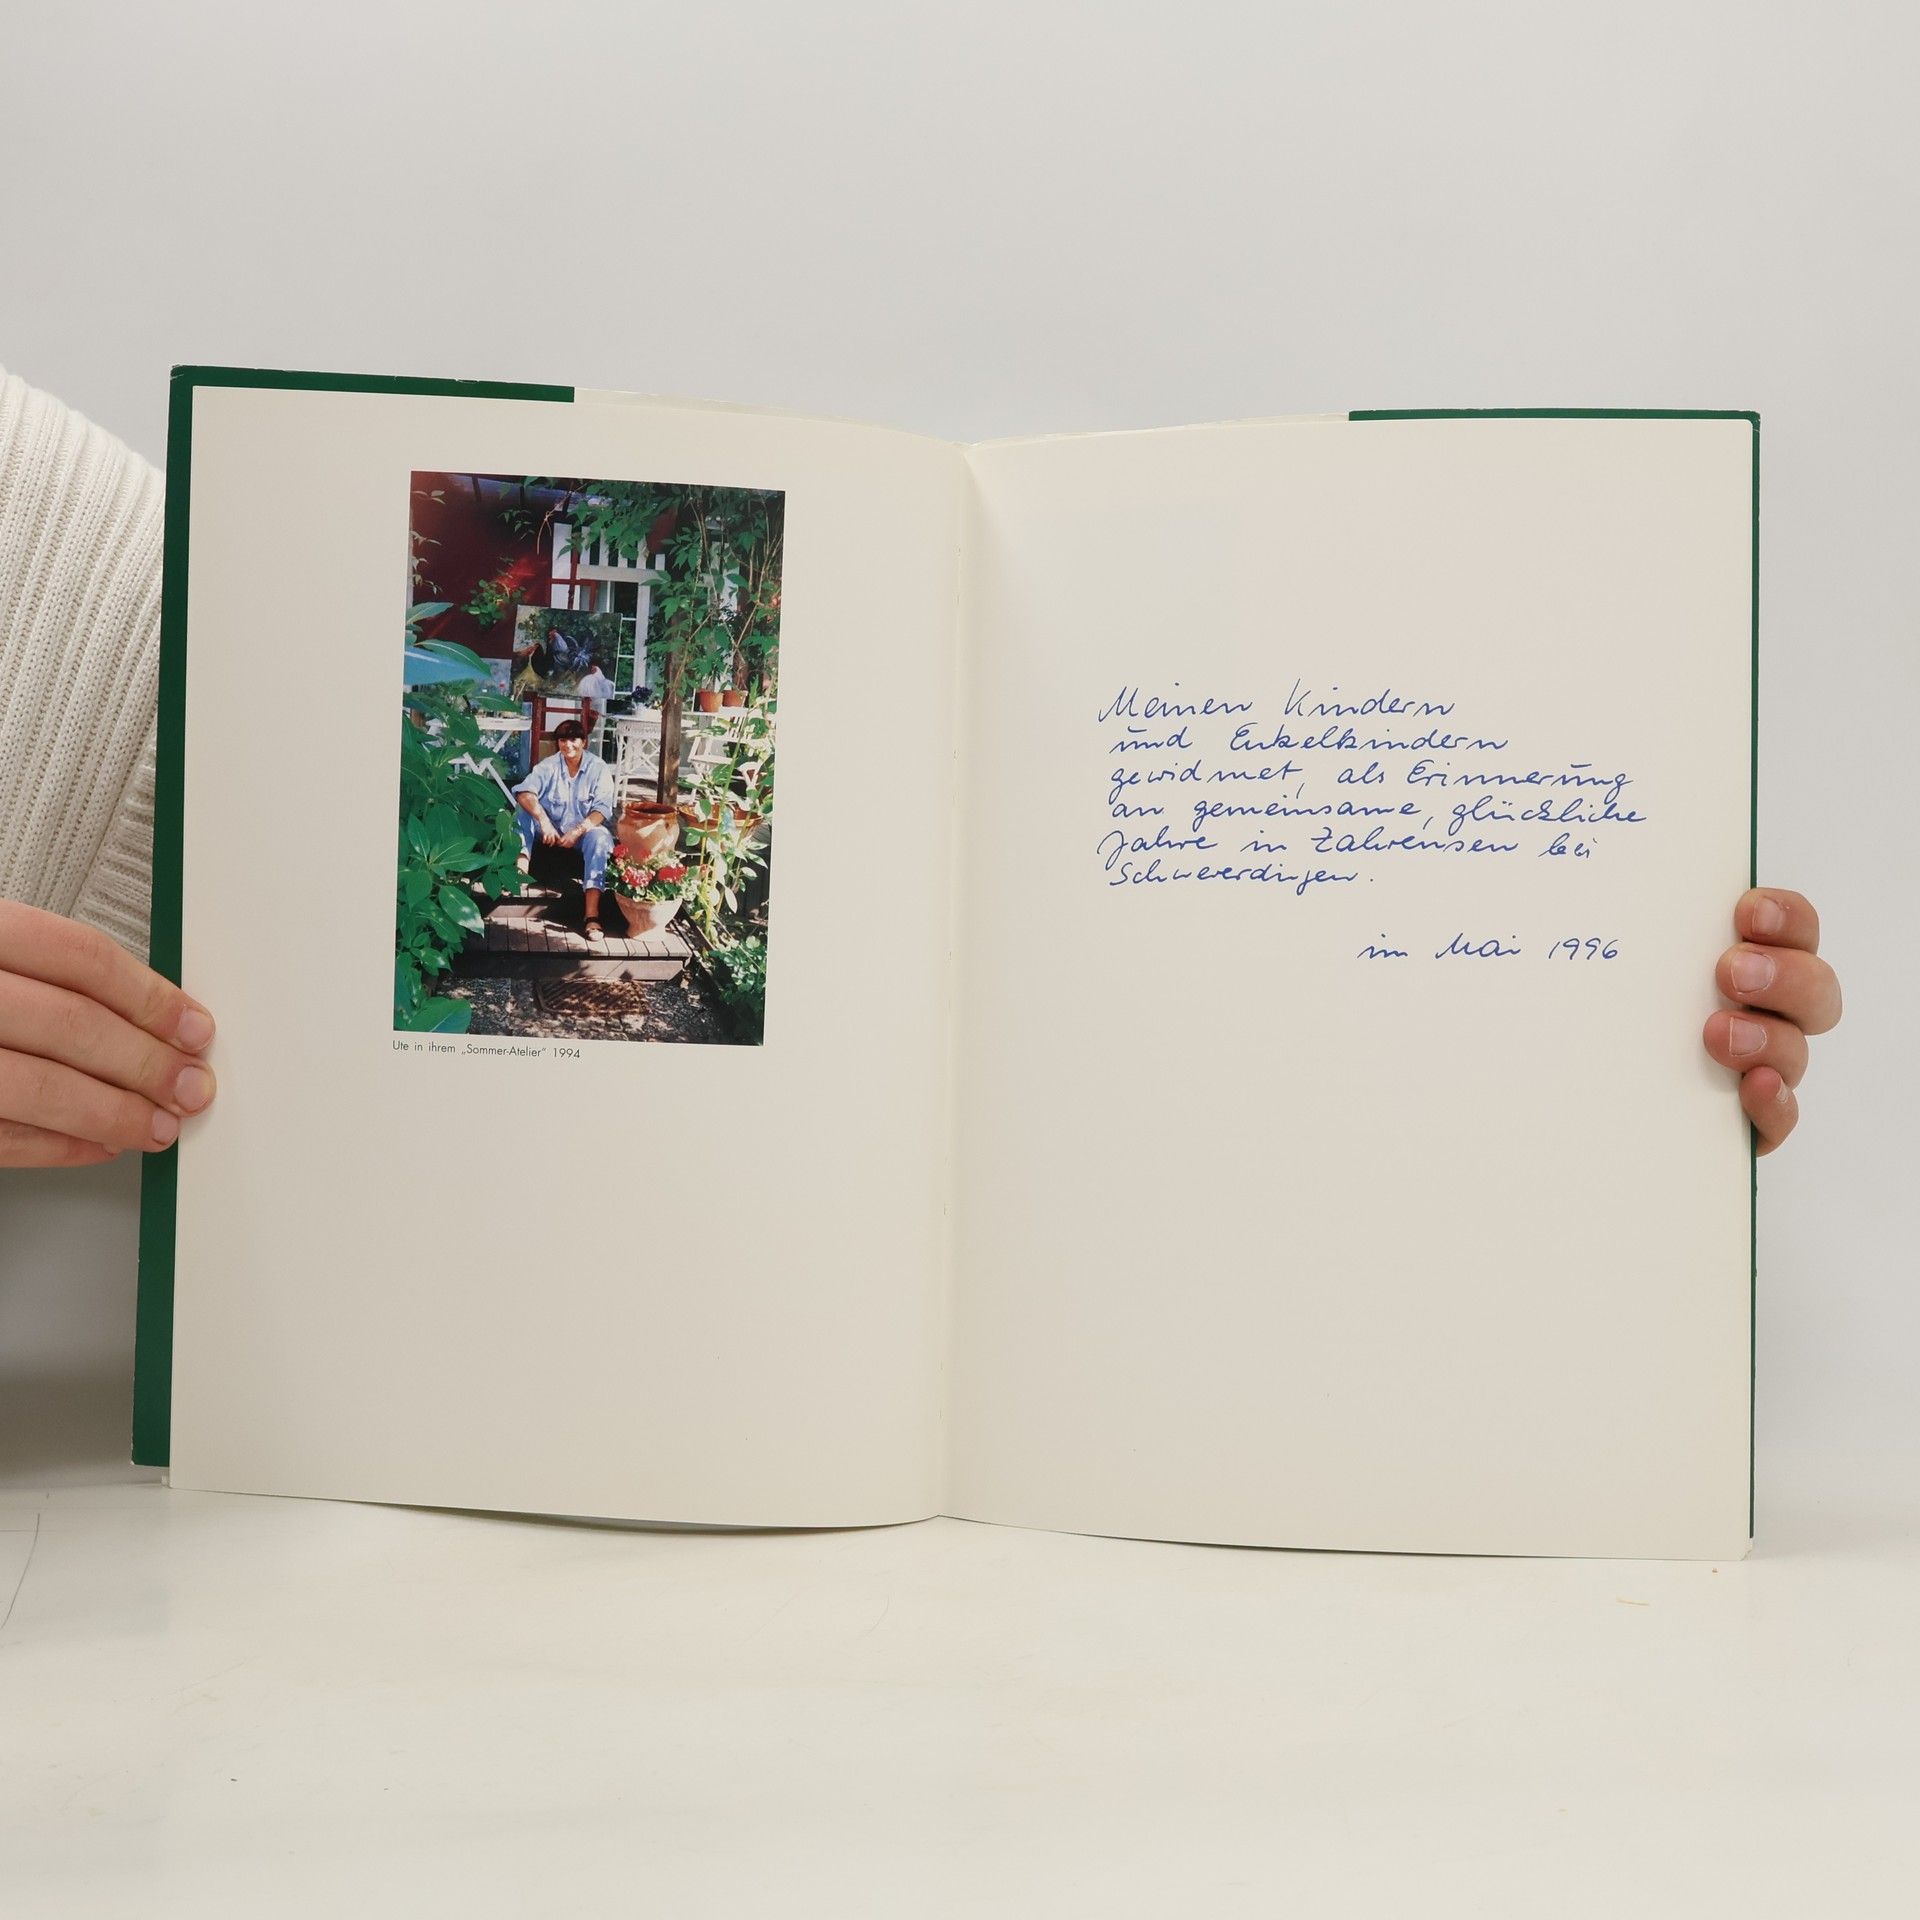 Ute in ihrem „Sommer-Atelier“ 1994
Meinen Kindern
und Enkelkindern
gewidmet, als Erinnerung
an gemeinsame, glückliche
Jahre in Zahrensen bei
Schneverdingen.
im Mai 1996